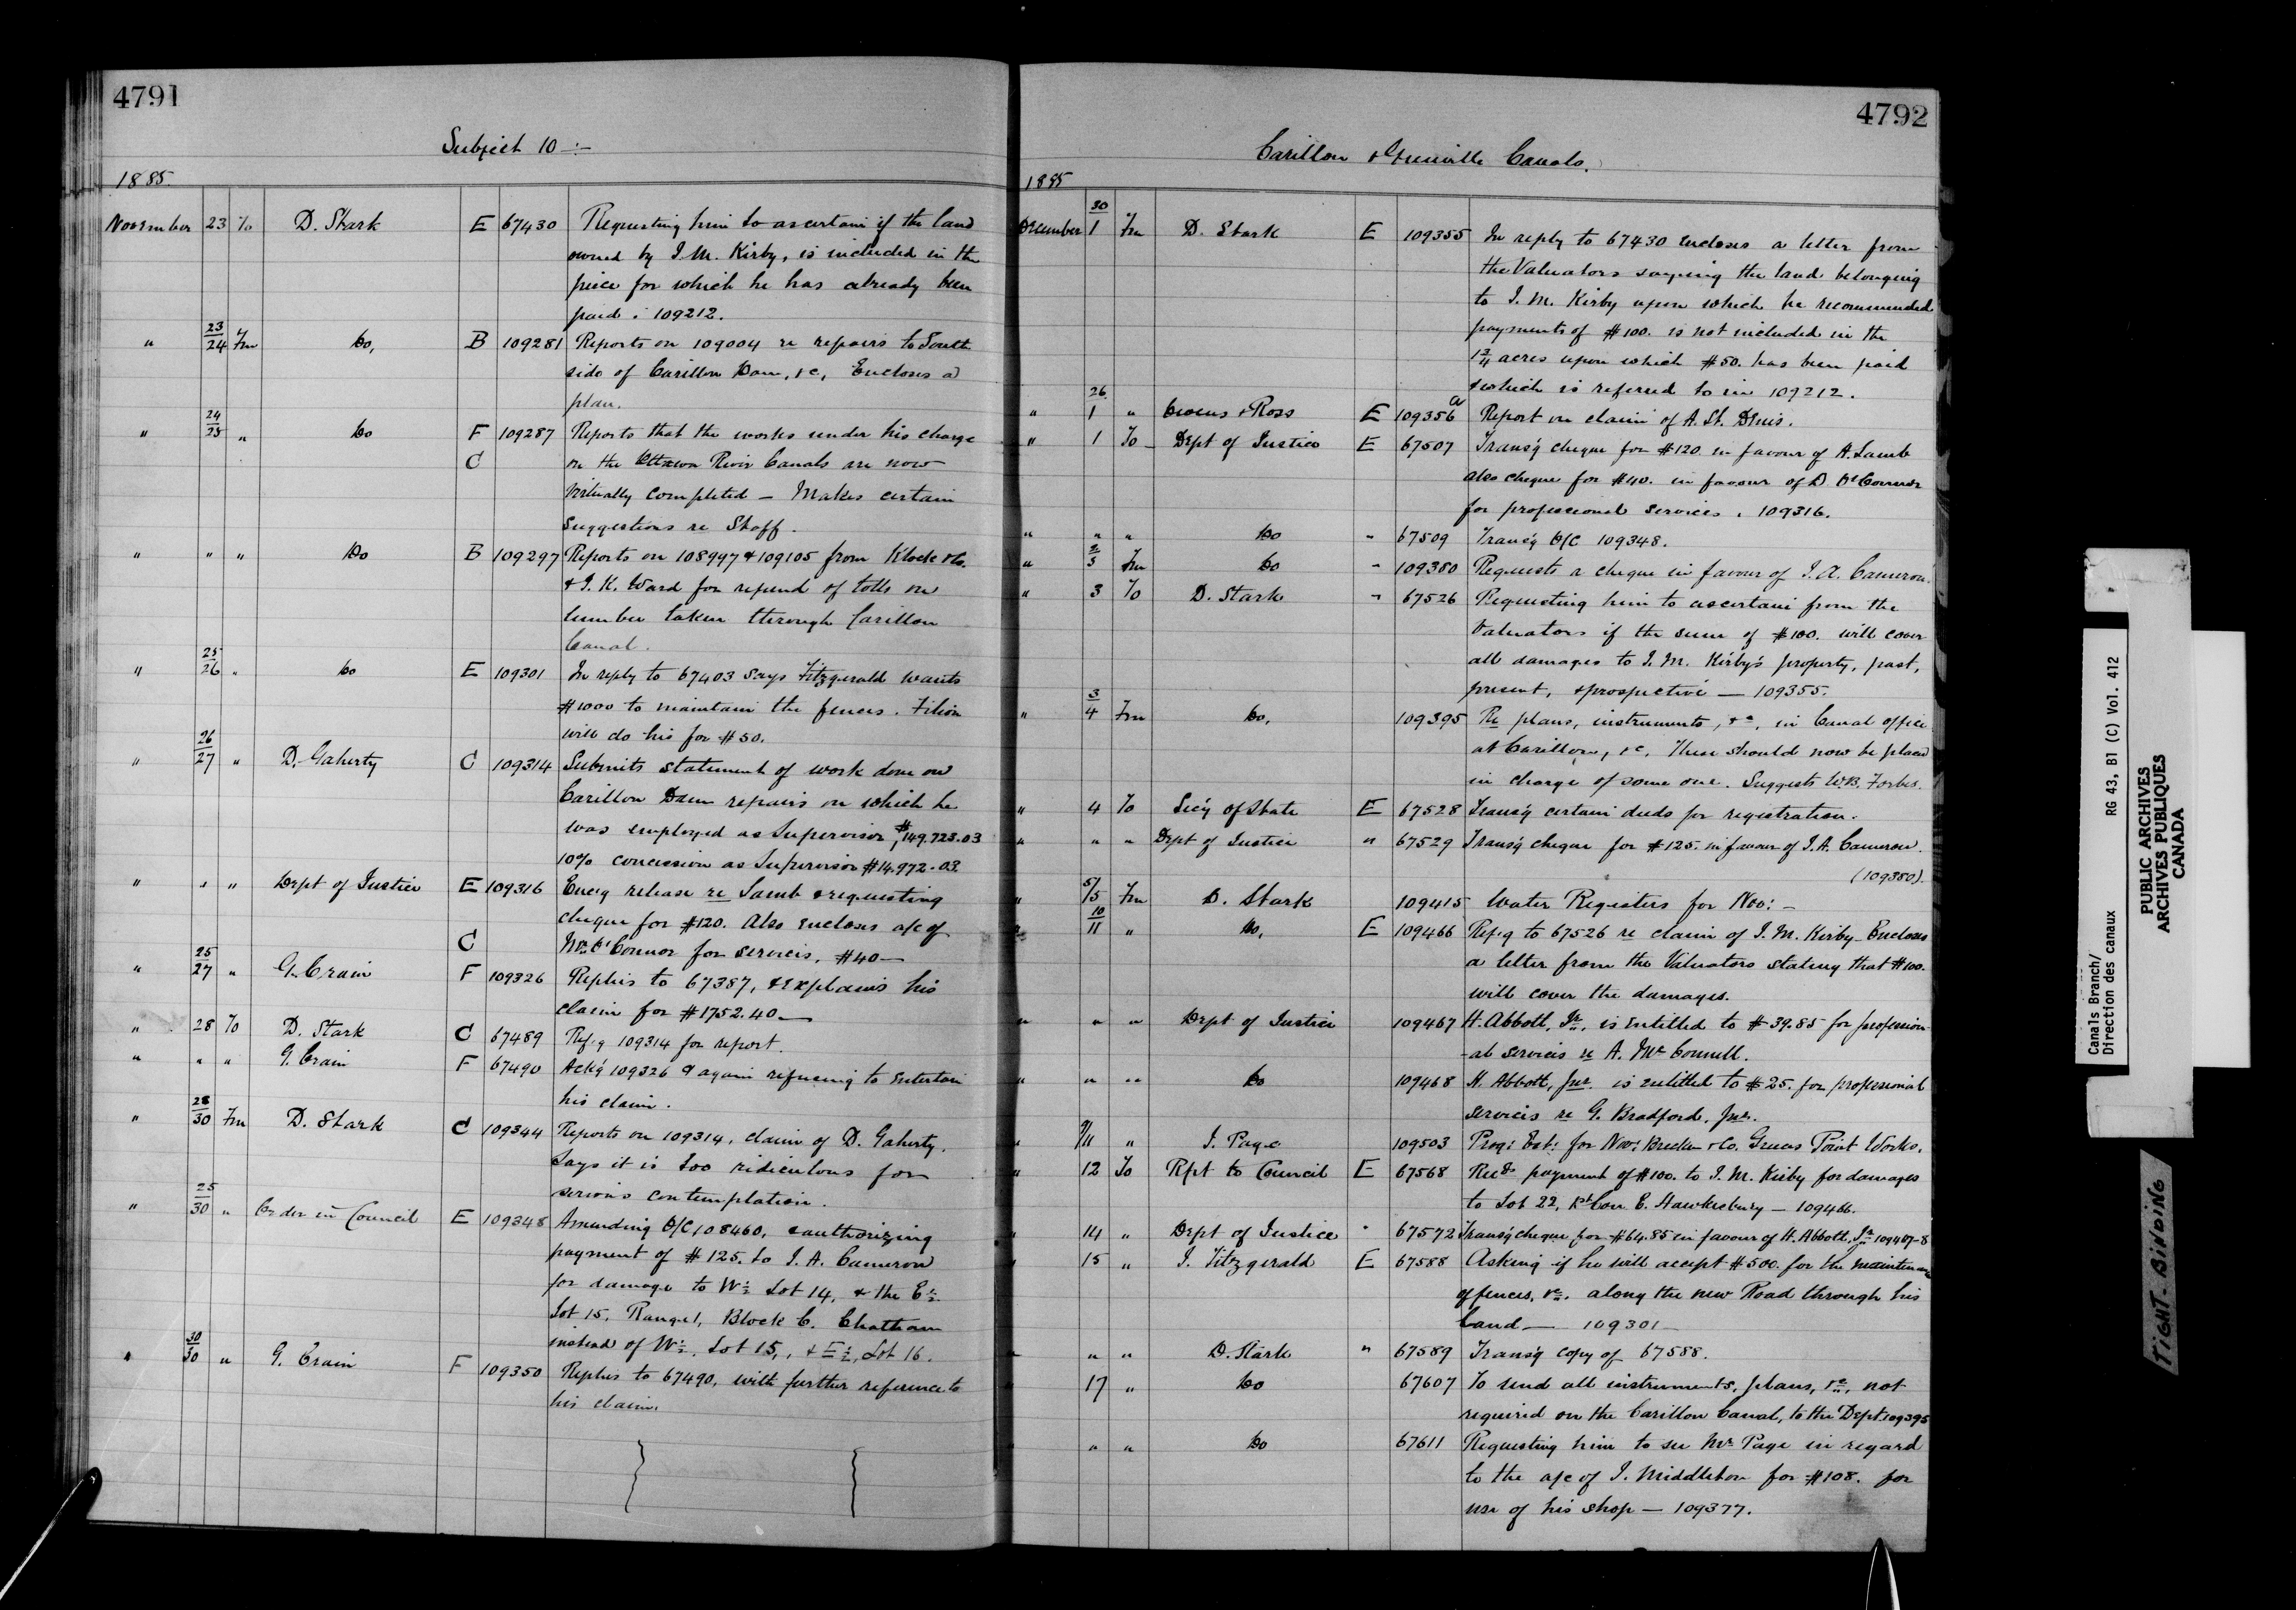 4791
Subject 10 :-
1885.
November 23 To D. Stark E 67430 Requesting him to ascertain if the land
owned by J. M. Kirby, is included in the
piece for which he has already been
paid : 109212.
" 23/24 Fm Do, B 109281 Reports on 109004 re repairs to South
side of Carillon Dam, &c, Encloses a
plan.
" 24/25 " Do F 109287 Reports that the works under his charge
C on the Ottawa River Canals are now
virtually completed — Makes certain
suggestions re Staff.
" " " Do B 109297 Reports on 108997 & 109105 from Klock & Co.
& J. K. Ward for refund of tolls on
lumber taken through Carillon
Canal.
" 25/26 " Do E 109301 In reply to 67403 says Fitzgerald wants
$1000 to maintain the fences. Filion
will do his for $50.
" 26/27 " D. Gaherty C 109314 Submits statement of work done on
Carillon Dam repairs on which he
was employed as Supervisor, $149.723.03
10% concession as Supervisor $14.972.03
" " " Dept of Justice E 109316 Enc'g release re Lamb & requesting
cheque for $120. Also encloses a/c of
C Mr. O'Connor for services, $40 —
" 25/27 " G. Crain F 109326 Replies to 67387, & explains his
claim for $1752.40 —
" 28 To D. Stark C 67489 Ref'g 109314 for report.
" " " G. Crain F 67490 Ack'g 109326 & again refusing to entertain
his claim.
" 28/30 Fm D. Stark C 109344 Reports on 109314, claim of D. Gaherty.
Says it is too ridiculous for
serious contemplation.
" 25/30 " Order in Council E 109348 Amending O/C 108460, & authorizing
payment of $125. to J. A. Cameron
for damage to W½ Lot 14, & the E½
Lot 15, Range 1, Block C. Chatham
instead of W½, Lot 15, & E½, Lot 16.
" 30/30 " G. Crain F 109350 Replies to 67490, with further reference to
his claim.
4792
Carillon & Grenville Canals.
1885
December 30/1 Fm D. Stark E 109355 In reply to 67430 encloses a letter from
the Valuators saying the land belonging
to J. M. Kirby upon which he recommended
payments of $100. is not included in the
acres upon which $50. has been paid
& which is referred to in 109212.
" 26/1 " Owens & Ross E 109356a Report on claim of A. St. Denis.
" 1 To Dept of Justice E 67507 Trans'g cheque for $120 in favour of A. Lamb
also cheque for $40. in favour of D O'Connor
for professional services. 109316.
" " " Do " 67509 Trans'g O/C 109348.
" 2/3 Fm Do " 109380 Requests a cheque in favour of J. A. Cameron.
" 3 To D. Stark " 67526 Requesting him to ascertain from the
Valuators if the sum of $100. will cover
all damages to J. M. Kirby's property, past,
present, & prospective — 109355.
" 3/4 Fm Do, 109395 Re plans, instruments, &c, in Canal office
at Carillon, &c. These should now be placed
in charge of some one. Suggests W.B. Forbes.
" 4 To Sec'y of State E 67528 Trans'g certain deeds for registration.
" " " Dept of Justice " 67529 Trans'g cheque for $125. in favour of J. A. Cameron.
(109380).
" 5/5 Fm D. Stark 109415 Water Registers for Nov: —
" 10/11 " Do, E 109466 Ref'g to 67526 re claim of J. M. Kirby — Encloses
a letter from the Valuators stating that $100.
will cover the damages.
" " " Dept of Justice 109467 H. Abbott, Jr., is entitled to $39.85 for profession
-al services re A. Mc Connell.
" " " Do 109468 H. Abbott, Jnr. is entitled to $25. for professional
services re G. Bradford, Jnr.
" 9/11 " J. Page 109503 Prog: Est: for Nov: & Co. Greens Point Works.
" 12 To Rpt to Council E 67568 Rec'ds payment of $100. to J. M. Kirby for damages
to Lot 22, 1st Con E. Hawkesbury — 109466.
" 14 " Dept of Justice " 67572 Trans'g cheque for $64.85 in favour of H. Abbott, Jr 109467-8
" 15 " J. Fitzgerald E 67588 Asking if he will accept $500. for the maintenance
of fences, &c. along the new Road through his
land — 109301 —
" " " D. Stark " 67589 Trans'g copy of 67588.
" 17 " Do 67607 To send all instruments, plans, &c, not
required on the Carillon Canal, to the Dept. 109395
" " " Do 67611 Requesting him to see Mr Page in regard
to the a/c of J. Middleton for $108. for
use of his shop — 109377.
Canals Branch/
Direction des canaux RG 43, B1 (C) Vol. 412
PUBLIC ARCHIVES
ARCHIVES PUBLIQUES
CANADA
TIGHT-BINDING